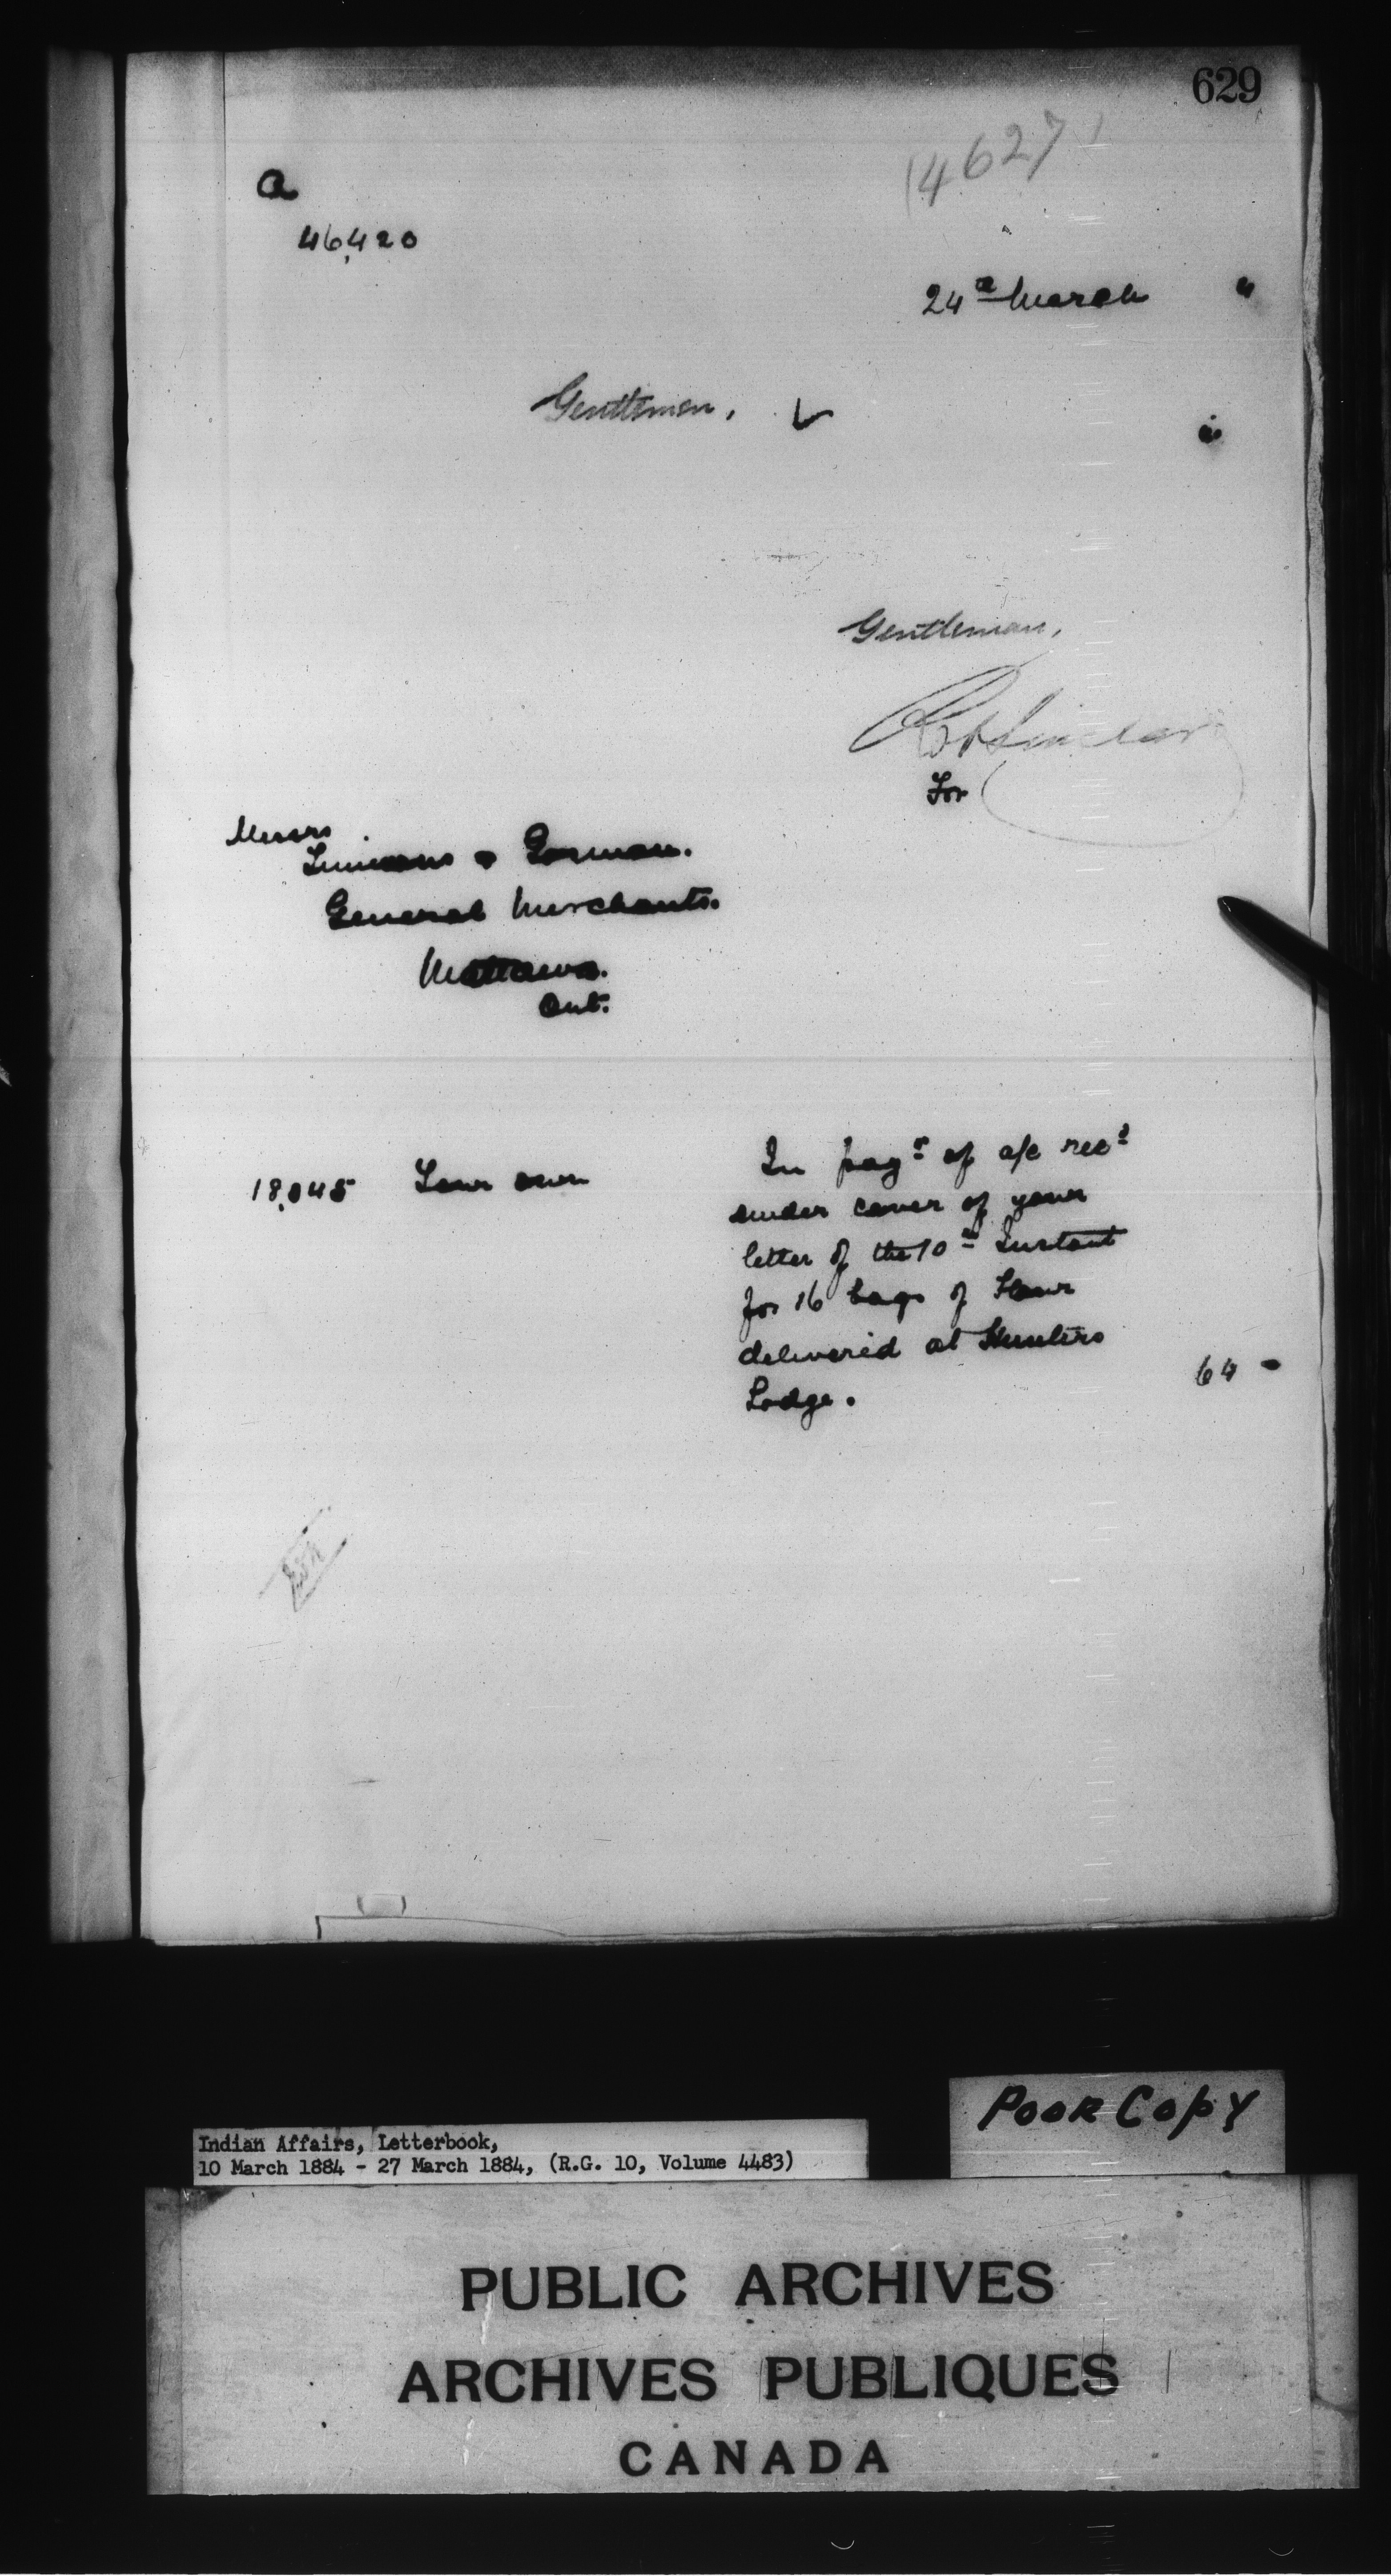 629
14627
a
46,420
24th March "
Gentlemen,
Gentlemen,
Sinclair
For
Messrs
& Gorman.
General Merchants.
Mattawa.
Ont.
18,045
In payt of a/c recd
under cover of your
letter of the 10th Instant
for 16 bags of Flour
delivered at Hunters
Lodge.
64 -
Indian Affairs, Letterbook,
10 March 1884 - 27 March 1884, (R.G. 10, Volume 4483)
POOR COPY
PUBLIC ARCHIVES
ARCHIVES PUBLIQUES
CANADA